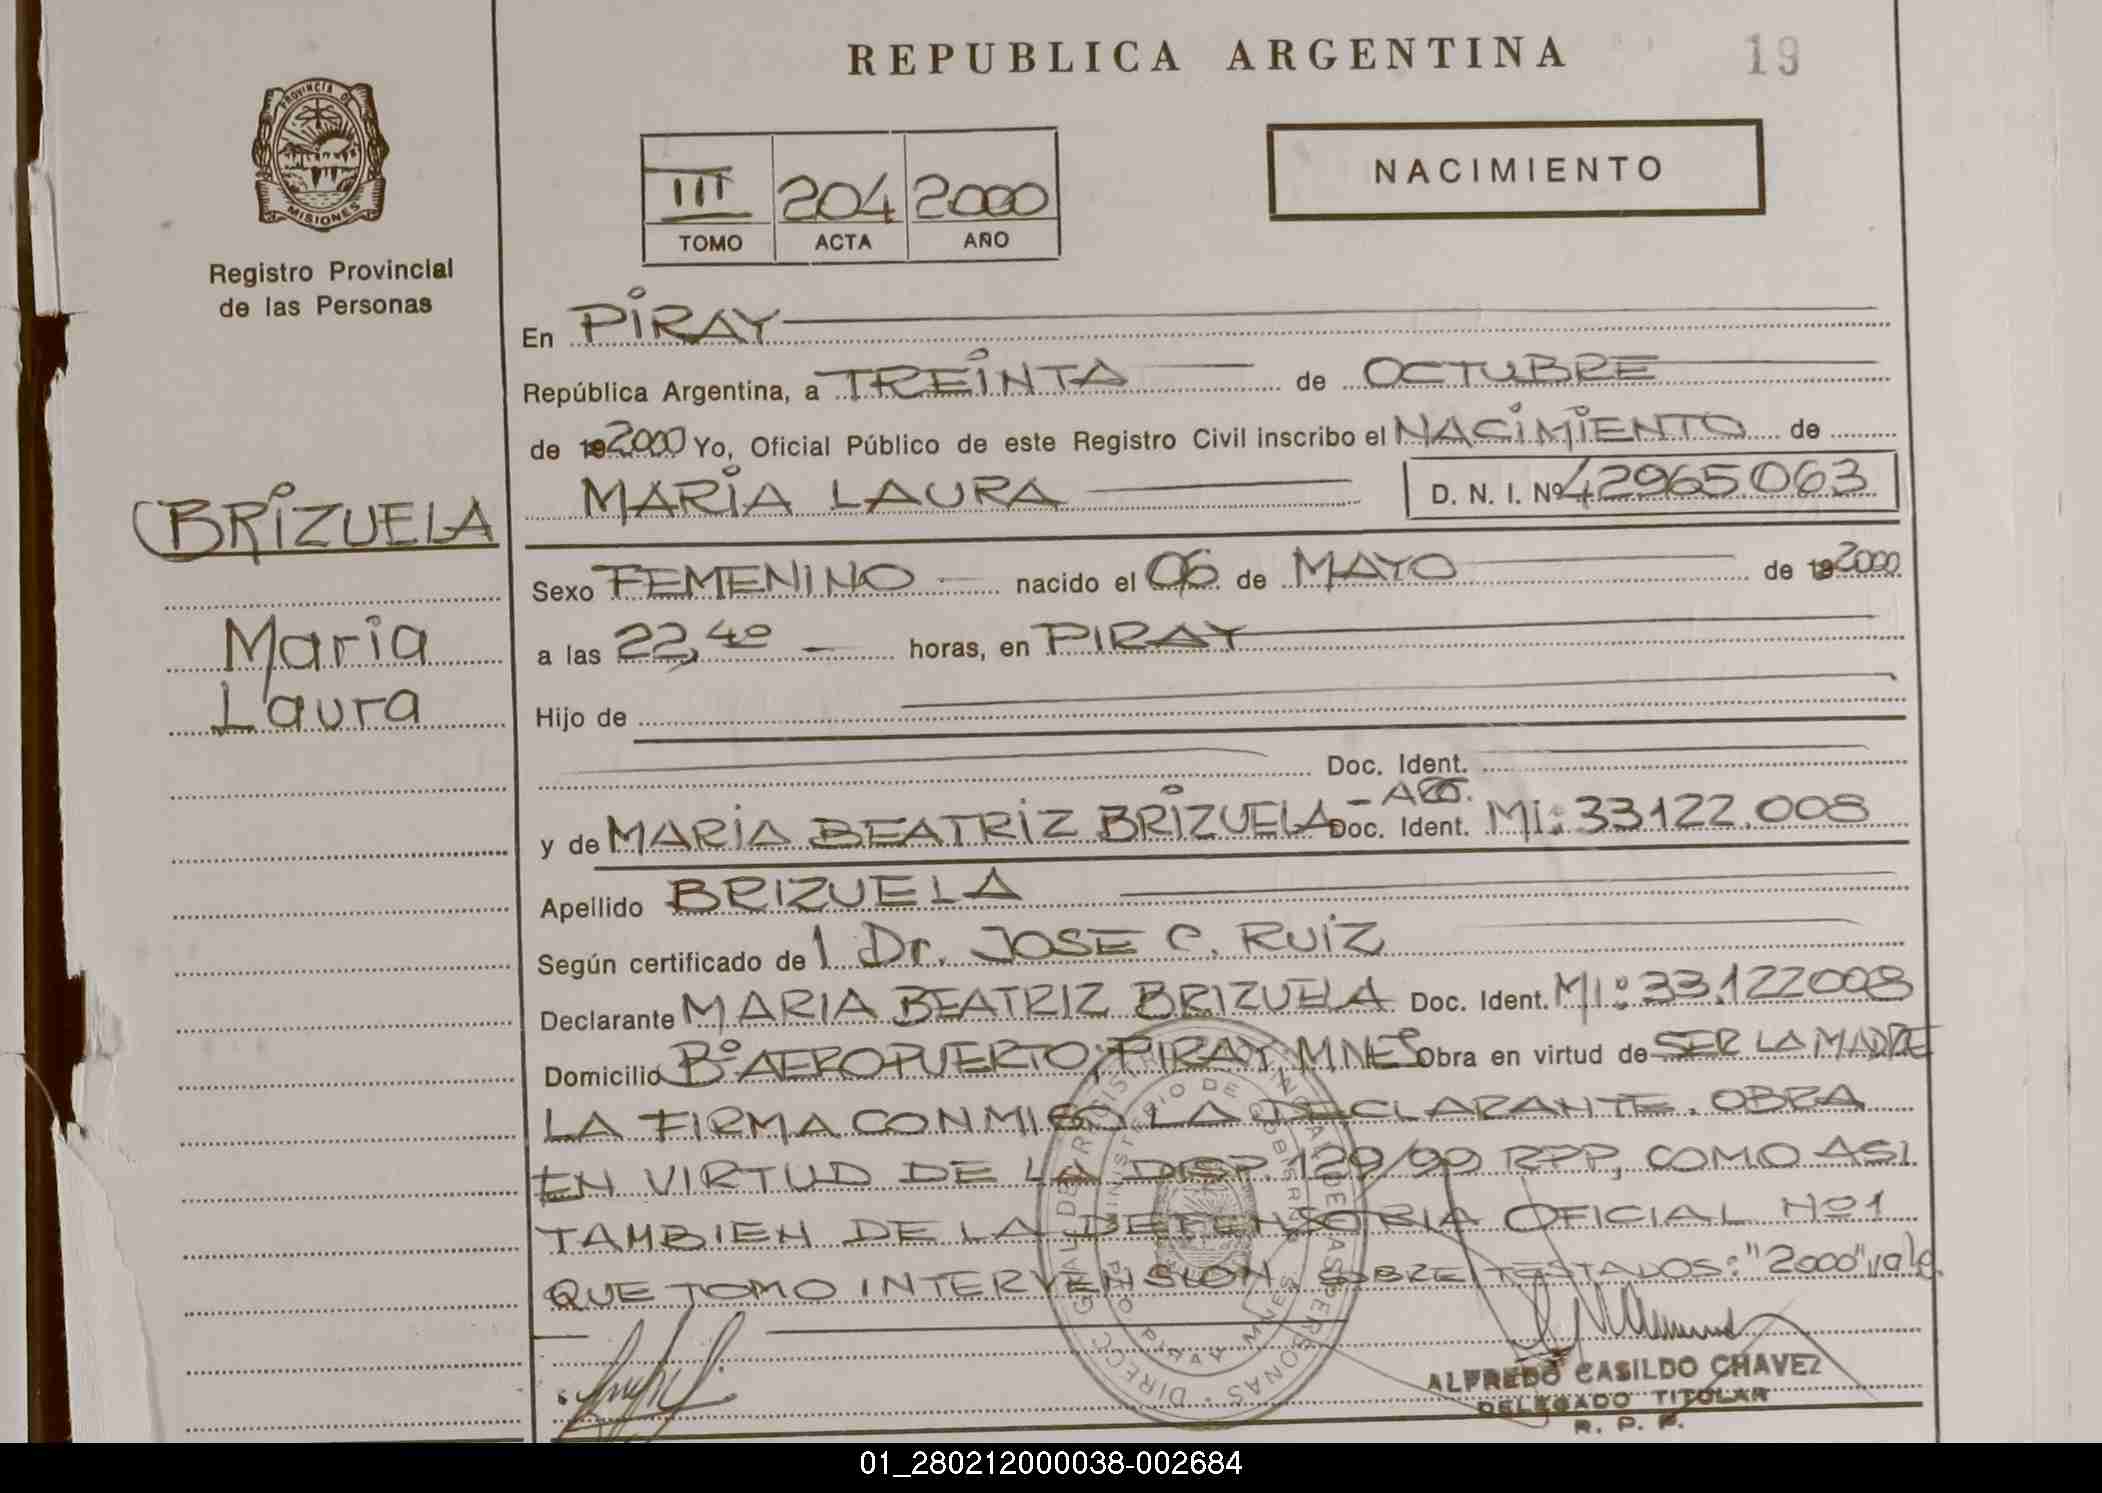 REPUBLICA ARGENTINA
19
PROVINCIA DE
MISIONES
Registro Provincial
de las Personas
III 204 2000
TOMO ACTA AÑO
NACIMIENTO
En PIRAY
República Argentina, a TREINTA de OCTUBRE
de 192000 Yo, Oficial Público de este Registro Civil inscribo el NACIMIENTO de
MARIA LAURA D. N. I. Nº 42965063
BRIZUELA
Maria
Laura
Sexo FEMENINO nacido el 06 de MAYO de 192000
a las 22,40 horas, en PIRAY
Hijo de
Doc. Ident.
y de MARIA BEATRIZ BRIZUELA - ARG. Doc. Ident. MI: 33122.008
Apellido BRIZUELA
Según certificado de l Dr. JOSE C. RUIZ
Declarante MARIA BEATRIZ BRIZUELA Doc. Ident. MI: 33.122008
Domicilio Bº AEROPUERTO, PIRAY, MNES Obra en virtud de SER LA MADRE
LA FIRMA CONMIGO LA DECLARANTE. OBRA
EN VIRTUD DE LA DISP. 129/99 RPP, COMO ASI
TAMBIEN DE LA DEFENSORIA OFICIAL Nº1
QUE TOMO INTERVENSION, SOBRE TESTADOS: "2000" vale.
ALFREDO CASILDO CHAVEZ
DELEGADO TITULAR
R. P. P.
01_280212000038-002684